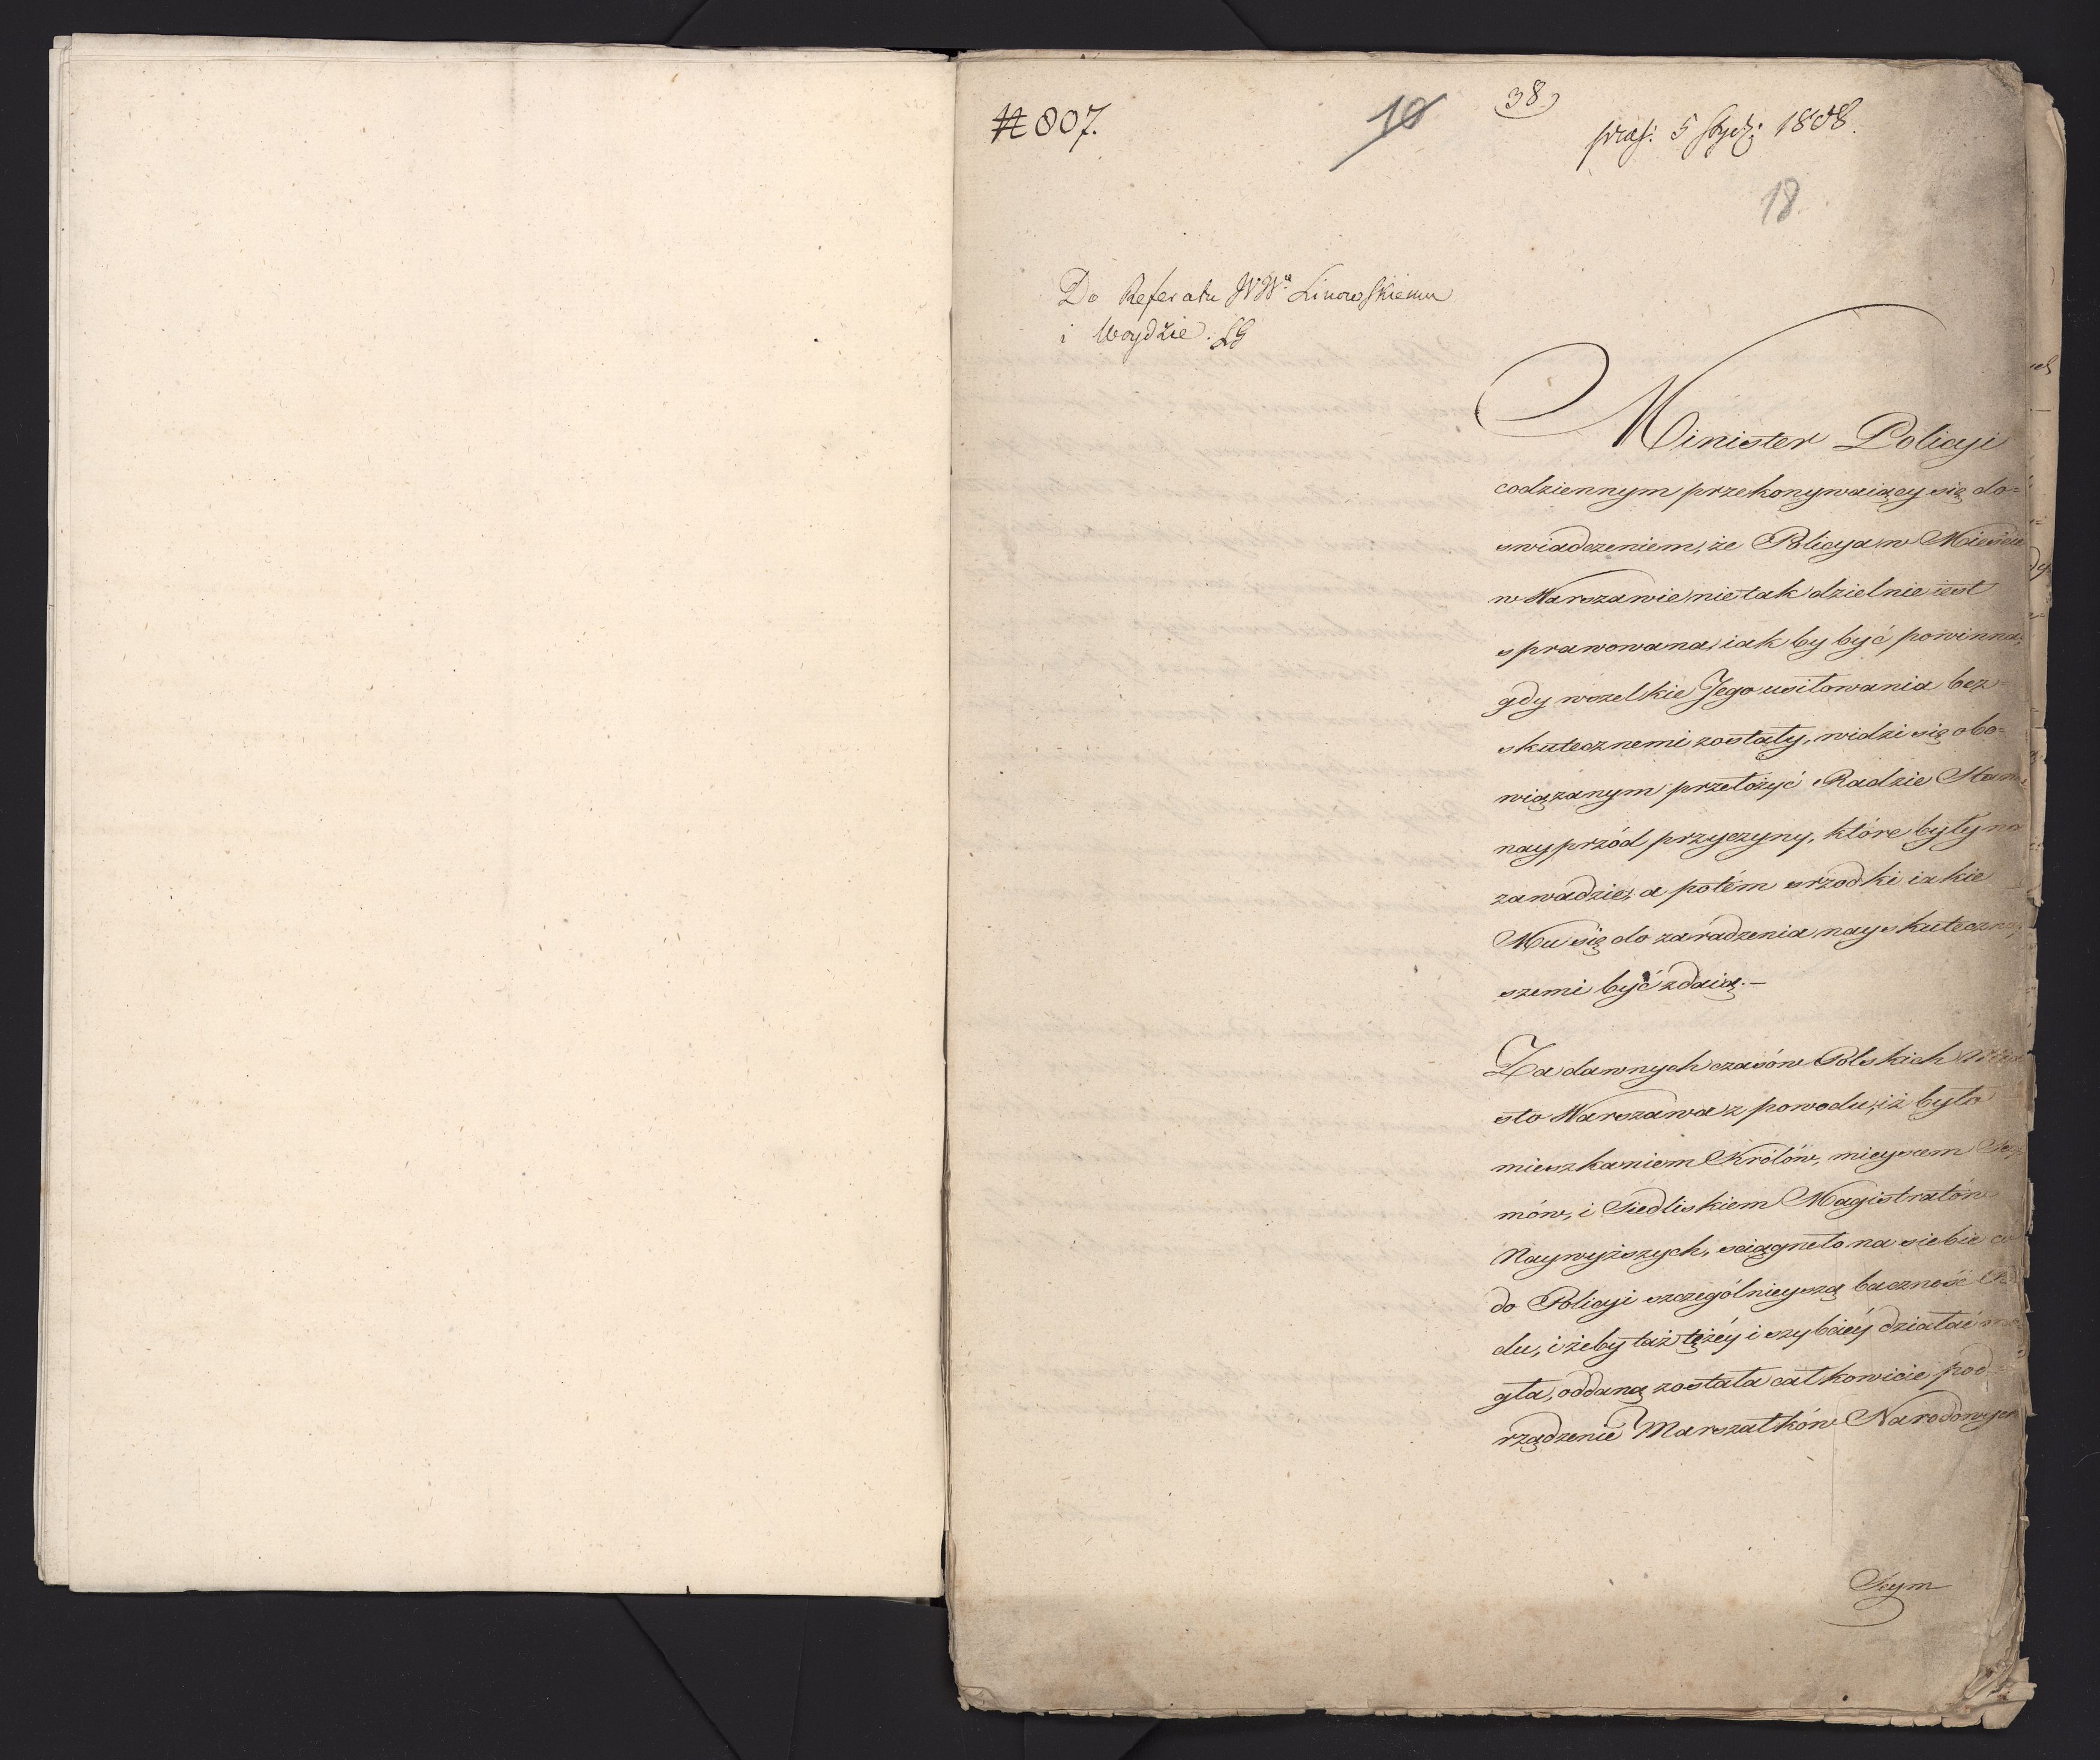 # 807.
10
38
pras: 5 Stycz: 1808.
18.
Do Referatu WWa Linowskiemu
i Woydzie. LG
Minister Policyi
codziennym przekonywaiący się do=
swiadczeniem, że Policya w Mieście
w Warszawie nie tak dzielnie iest
sprawowana, iak by być powinna,
gdy wszelkie Jego usiłowania bez=
skutecznemi zostały, widzi się obo=
wiązanym przełożyć Radzie Stanu
nayprzód przyczyny, które były na
zawadzie, a potém srzodki iakie
Mu się do zaradzenia nayskuteczniey
szemi być zdaią.—
Za dawnych czasów Polskich Mia
sto Warszawa z powodu, iż było
mieszkaniem Królów, mieyscem Sey
mów, i Siedliskiem Magistratów
Naywyższych, sciągneło na siebie co
do Policyi szczególnieyszą baczność
du, i żeby taż tężéy i szybciéy działać mo
gła, oddaną została całkowicie pod
rządzenie Marszałków Narodowych
Seym